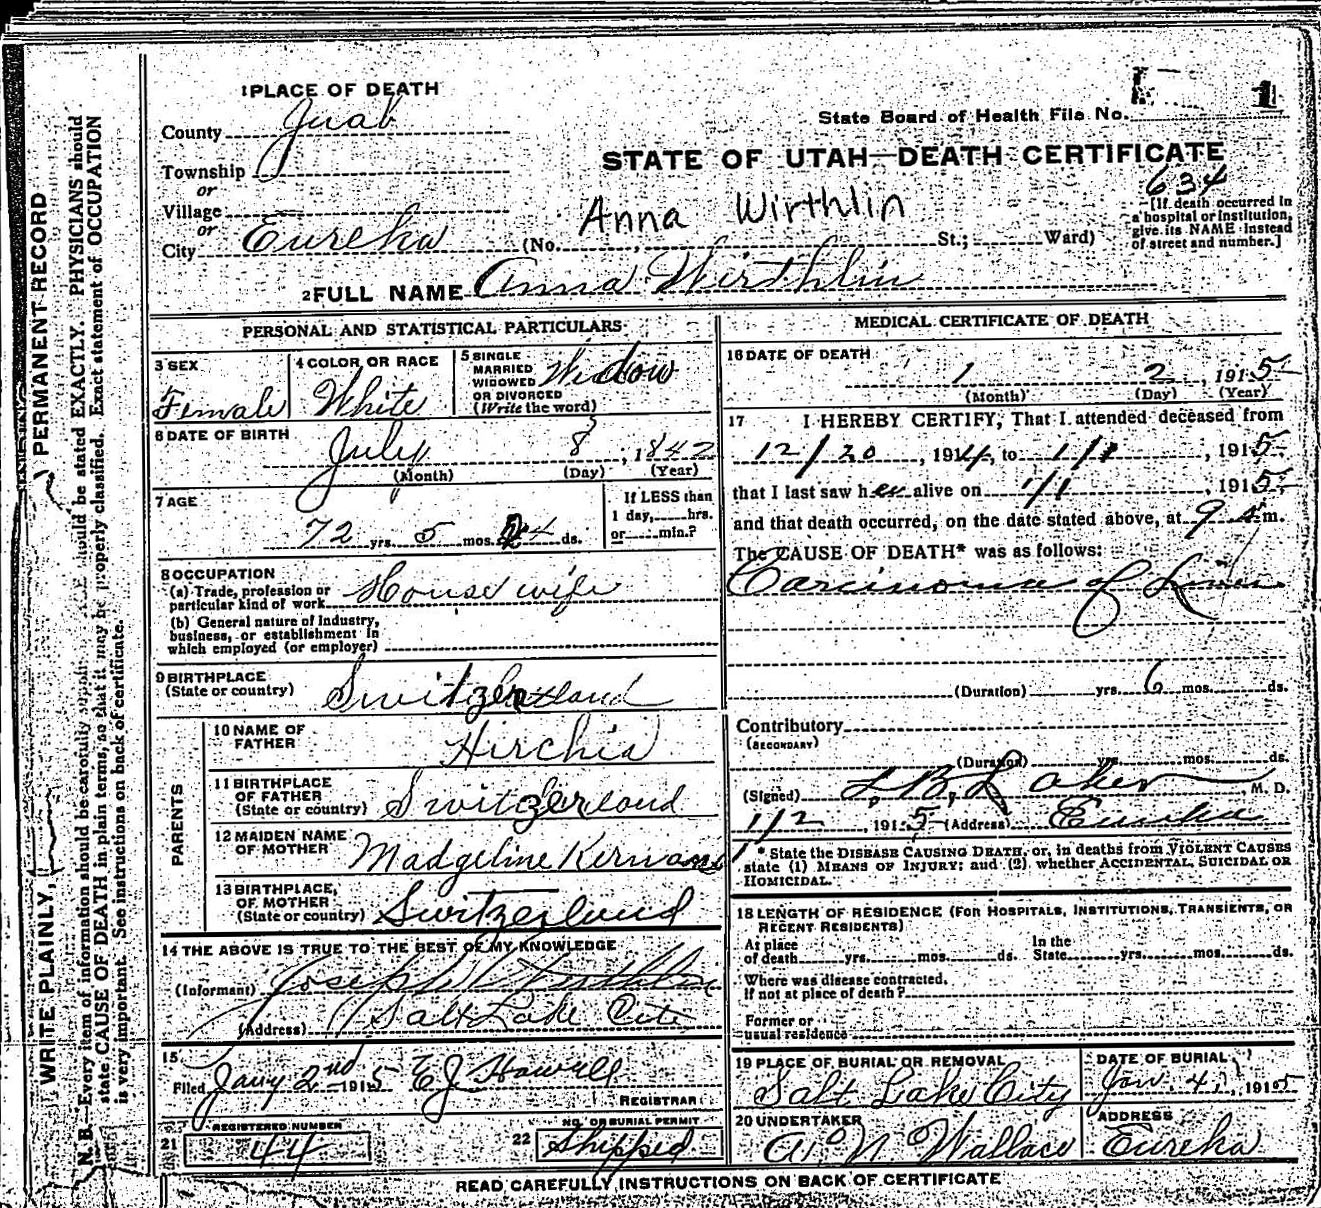 1 PLACE OF DEATH
County Juab
Township
or
Village
or
City Eureka (No. St.; Ward)
State Board of Health File No.
STATE OF UTAH—DEATH CERTIFICATE
634
Anna Wirthlin
[If death occurred in
a hospital or institution,
give its NAME instead
of street and number.]
2 FULL NAME Anna Wirthlin
PERSONAL AND STATISTICAL PARTICULARS
3 SEX
Female
4 COLOR OR RACE
White
5 SINGLE
MARRIED
WIDOWED
OR DIVORCED
(Write the word)
Widow
6 DATE OF BIRTH
July 8, 1842
(Month) (Day) (Year)
7 AGE
72 yrs. 5 mos. 24 ds.
If LESS than
1 day, hrs.
or min.?
8 OCCUPATION
(a) Trade, profession or
particular kind of work House wife
(b) General nature of industry,
business, or establishment in
which employed (or employer)
9 BIRTHPLACE
(State or country) Switzerland
PARENTS
10 NAME OF
FATHER Hirchia
11 BIRTHPLACE
OF FATHER
(State or country) Switzerland
12 MAIDEN NAME
OF MOTHER Madgeline
13 BIRTHPLACE,
OF MOTHER
(State or country) Switzerland
14 THE ABOVE IS TRUE TO THE BEST OF MY KNOWLEDGE
(Informant) Joseph Wirthlin
(Address) Salt Lake City
15
Filed Jany 2nd 1915 EJ Howell
REGISTRAR
REGISTERED NUMBER
21 44
NO. OF BURIAL PERMIT
22 Shipped
MEDICAL CERTIFICATE OF DEATH
16 DATE OF DEATH
1 2, 1915
(Month) (Day) (Year)
17 I HEREBY CERTIFY, That I attended deceased from
12/20, 1914, to 1/1, 1915
that I last saw her alive on 1/1, 1915
and that death occurred, on the date stated above, at 9 A.m.
The CAUSE OF DEATH* was as follows:
Carcinoma of Liver
(Duration) yrs. 6 mos. ds.
Contributory
(SECONDARY)
(Duration) yrs. mos. ds.
(Signed) , M. D.
1/2, 1915 (Address) Eureka
* State the DISEASE CAUSING DEATH, or, in deaths from VIOLENT CAUSES
state (1) MEANS OF INJURY; and (2) whether ACCIDENTAL, SUICIDAL OR
HOMICIDAL.
18 LENGTH OF RESIDENCE (FOR HOSPITALS, INSTITUTIONS, TRANSIENTS, OR
RECENT RESIDENTS)
At place
of death yrs. mos. ds.
In the
State yrs. mos. ds.
Where was disease contracted,
If not at place of death?
Former or
usual residence
19 PLACE OF BURIAL OR REMOVAL
Salt Lake City
DATE OF BURIAL
Jan. 4, 1915
20 UNDERTAKER
A. N. Wallace
ADDRESS
Eureka
READ CAREFULLY INSTRUCTIONS ON BACK OF CERTIFICATE
WRITE PLAINLY, PERMANENT RECORD
N. B.—Every item of information should be carefully should be stated EXACTLY. PHYSICIANS should
state CAUSE OF DEATH in plain terms, so that it may be properly classified. Exact statement of OCCUPATION
is very important. See instructions on back of certificate.